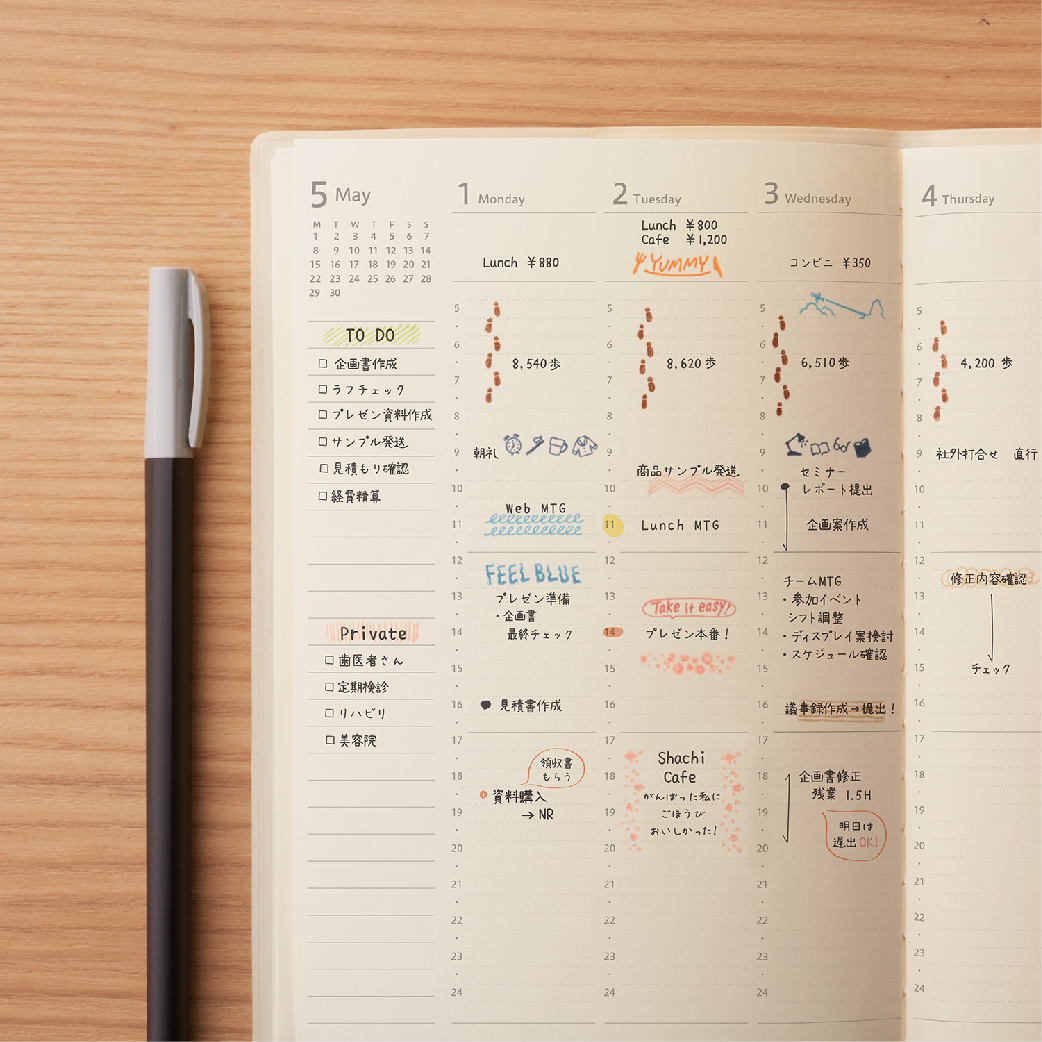 5 May
M T W T F S S
1 2 3 4 5 6 7
8 9 10 11 12 13 14
15 16 17 18 19 20 21
22 23 24 25 26 27 28
29 30
TO DO
□ 企画書作成
□ ラフチェック
□ プレゼン資料作成
□ サンプル発送
□ 見積もり確認
□ 経費精算
Private
□ 歯医者さん
□ 定期検診
□ リハビリ
□ 美容院
1 Monday
Lunch ¥880
5
6
8,540歩
7
8
9 朝礼
10
Web MTG
11
12
FEEL BLUE
13 プレゼン準備
・企画書
14 最終チェック
15
16 見積書作成
17
領収書
もらう
18
資料購入
19 → NR
20
21
22
23
24
2 Tuesday
Lunch ¥800
Cafe ¥1,200
YUMMY
5
6
8,620歩
7
8
9
商品サンプル発送
10
11 Lunch MTG
12
13 Take it easy!
14 プレゼン本番!
15
16
17
Shachi
18 Cafe
がんばった私に
19 ごほうび
おいしかった!
20
21
22
23
24
3 Wednesday
コンビニ ¥350
5
6
6,510歩
7
8
9
セミナー
10 レポート提出
11 企画案作成
12
チームMTG
13 ・参加イベント
シフト調整
14 ・ディスプレイ案検討
・スケジュール確認
15
16 議事録作成→提出!
17
18 企画書修正
残業 1.5H
19
明日は
遅出OK!
20
21
22
23
24
4 Thursday
5
6
4,200歩
7
8
9 社外打合せ 直行
10
11
12
修正内容確認
13
14
15 チェック
16
17
18
19
20
21
22
23
24